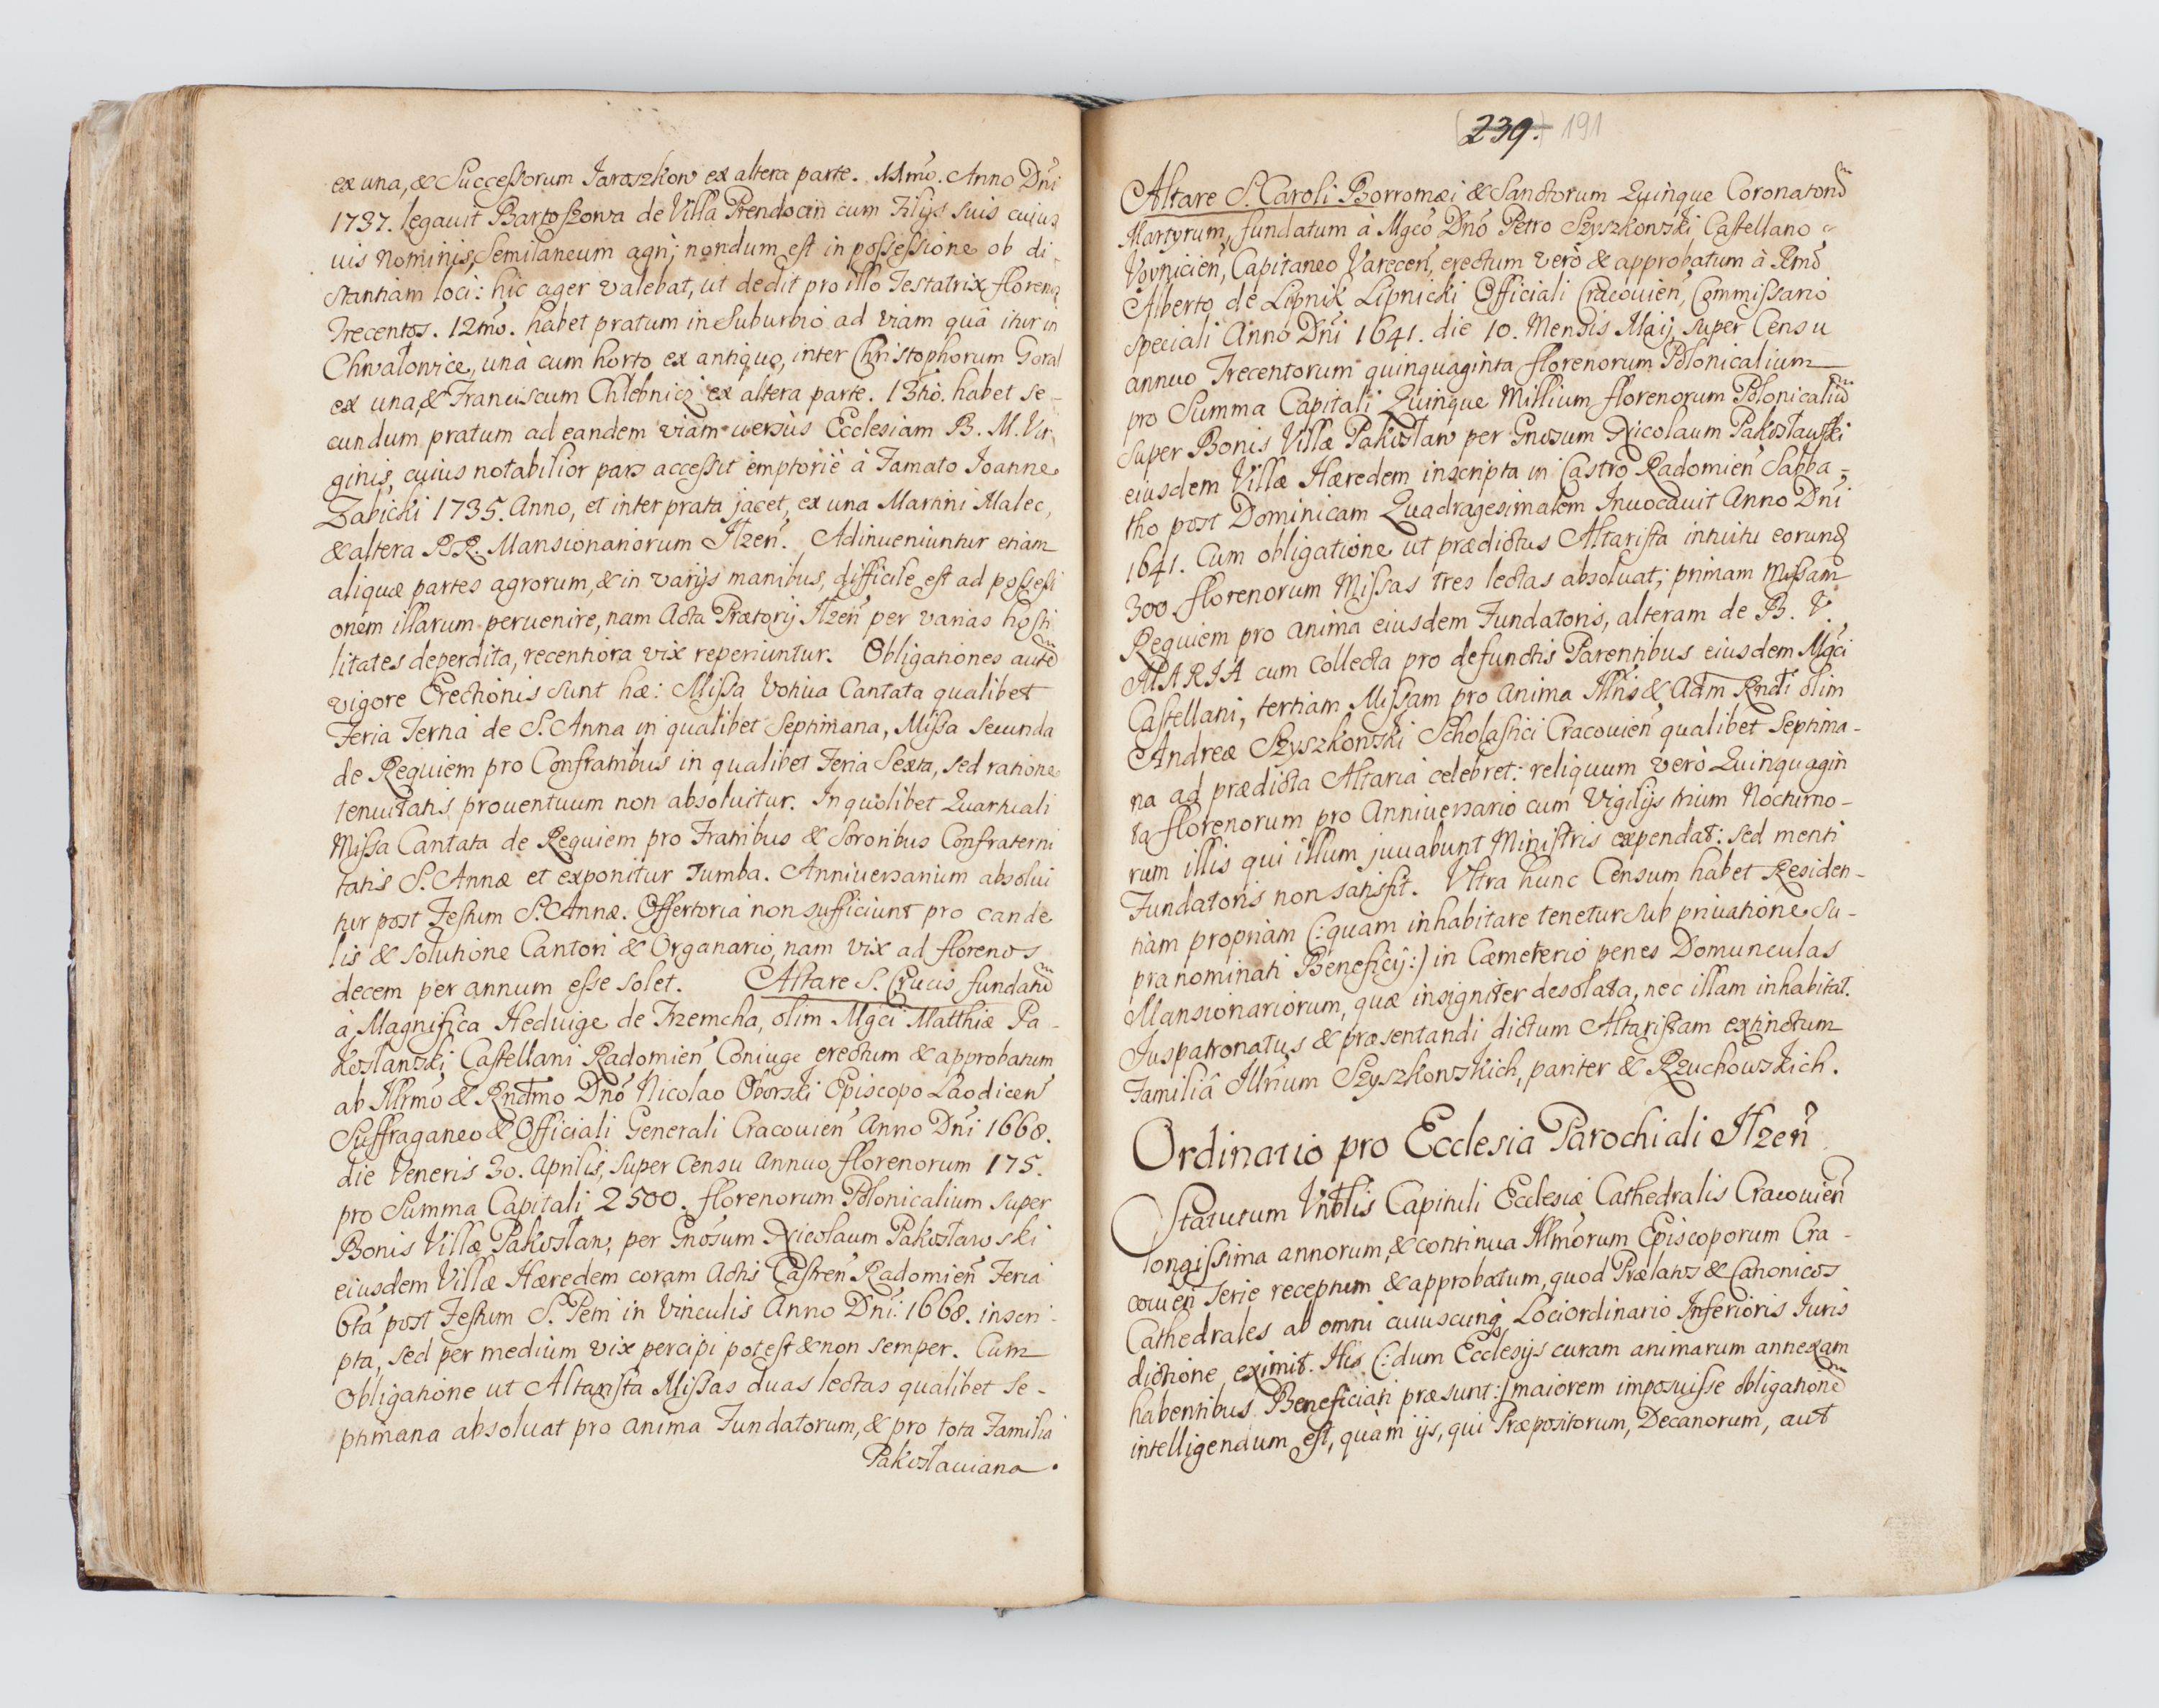 ex una, & Successorum Jaroszkow ex altera parte. 11mo. Anno Dñi
1737. legauit Bartoszowa de Villa Prendocin cum Filijs suis cuius
uis Nominis, Semilaneum agri; nondum est in possessione ob di-
stantiam loci: hic ager valebat, ut dedit pro illo Testatrix florenos
Trecentos. 12mo. habet pratum in Suburbio ad viam quâ itur in
Chwałowice, unà cum horto ex antiquo, inter Christophorum Goral
ex una, & Franciscum Chlebnicz ex altera parte. 13tio. habet se-
cundum pratum ad eandem viam uersùs Ecclesiam B. M. Vir-
ginis, cuius notabilior pars accessit emptoriè à Famato Joanne
Zabicki 1735. Anno, et inter prata jacet, ex una Martini Malec,
& altera RR. Mansionariorum Jłżeñ. Adinueniuntur etiam
aliquæ partes agrorum, & in varijs manibus, difficile est ad possessi
onem illarum peruenire, nam Acta Prætorij Jłżeñ per varias hosti
litates deperdita, recentiora vix reperiuntur. Obligationes autẽ
vigore Erectionis sunt hæ: Missa Votiua Cantata qualibet
Feria Tertia de S. Anna in qualibet Septimana, Missa Secunda
de Requiem pro Confratribus in qualibet Feria Sexta, sed ratione
tenuitatis prouentuum non absoluitur. In quolibet Quartuali
Missa Cantata de Requiem pro Fratribus & Sororibus Confraterni
tatis S. Annæ et exponitur Tumba. Anniuersarium absolui
tur post Festum S. Annæ. Offertoria non sufficiunt pro cande
lis & solutione Cantori & Organario, nam vix ad florenos
decem per annum esse solet. Altare S. Crucis fundatũ
à Magnifica Heduige de Trzemcha, olim Mgci Matthiæ Pa-
kosławski Castellani Radomieñ Coniuge erectum & approbatum
ab Illrmo & Rndmo Dño Nicolao Oborski Episcopo Laodiceñ
Suffraganeo & Officiali Generali Cracouieñ Anno Dñi 1668.
die Veneris 30. Aprilis, super Censu Annuo florenorum 175.
pro Summa Capitali 2500. florenorum Polonicalium super
Bonis Villæ Pakosław, per Gnosum Nicolaum Pakosławski
eiusdem Villæ Hæredem coram Actis Castreñ Radomieñ Feria
6ta post Festum S. Petri in Vinculis Anno Dñi: 1668. inscri-
pta, sed per medium vix percipi potest & non semper. Cum
Obligatione ut Altarista Missas duas lectas qualibet Se-
ptimana absoluat pro anima Fundatorum, & pro tota Familia
Pakosławiana.
239. 191
Altare S. Caroli Borromæi & Sanctorum Quinque Coronatorũ
Martyrum, fundatum à Mgco Dño Petro Szyszkowski Castellano
Voynicieñ, Capitaneo Vareceñ, erectum verò & approbatum à Rmo
Alberto de Lipnik Lipnicki Officiali Cracouieñ, Commissario
speciali Anno Dñi 1641. die 10. Mensis Maij, super Censu
annuo Trecentorum quinquaginta florenorum Polonicalium
pro Summa Capitali Quinque Millium florenorum Polonicaliũ
super Bonis Villæ Pakosław per Gnosum Nicolaum Pakosławski
eiusdem Villæ Hæredem inscripta in Castro Radomieñ Sabba-
tho post Dominicam Quadragesimalem Inuocauit Anno Dñi
1641. Cum obligatione ut prædictus Altarista intuitu eorund
300 florenorum Missas tres lectas absoluat; primam Missam
Requiem pro anima eiusdem Fundatoris, alteram de B. V.
MARIA cum Collecta pro defunctis Parentibus eiusdem Mgci
Castellani, tertiam Missam pro anima Illris & Adm Rndi olim
Andreæ Szyszkowski Scholastici Cracouieñ qualibet Septima-
na ad prædicta Altaria celebret: reliquum verò Quinquagin
ta florenorum pro Anniuersario cum Vigilijs trium Nocturno-
rum illis qui illum juuabunt Ministris expendat: sed menti
Fundatoris non satisfit. Ultra hunc Censum habet Residen-
tiam propriam (: quam inhabitare tenetur sub priuatione su-
pra nominati Beneficij :) in Cæmeterio penes Domunculas
Mansionariorum, quæ insigniter desolata, nec illam inhabitat.
Juspatronatus & præsentandi dictum Altaristam extinctum
Familiâ Illrium Szyszkowskich, pariter & Rzuchowskich.
Ordinatio pro Ecclesia Parochiali Jłżeñ.
Statutum Vnblis Capituli Ecclesiæ Cathedralis Cracouieñ
longissima annorum, & continua Illmorum Episcoporum Cra-
couieñ Serie receptum & approbatum, quod Prælatos & Canonicos
Cathedrales ab omni cuiuscunq Loci Ordinario Inferioris Juris
dictione eximit. His (: dum Ecclesijs curam animarum annexam
habentibus Beneficiati præsunt :) maiorem imposuisse obligationẽ
intelligendum est, quàm ijs, qui Præpositorum, Decanorum, aut